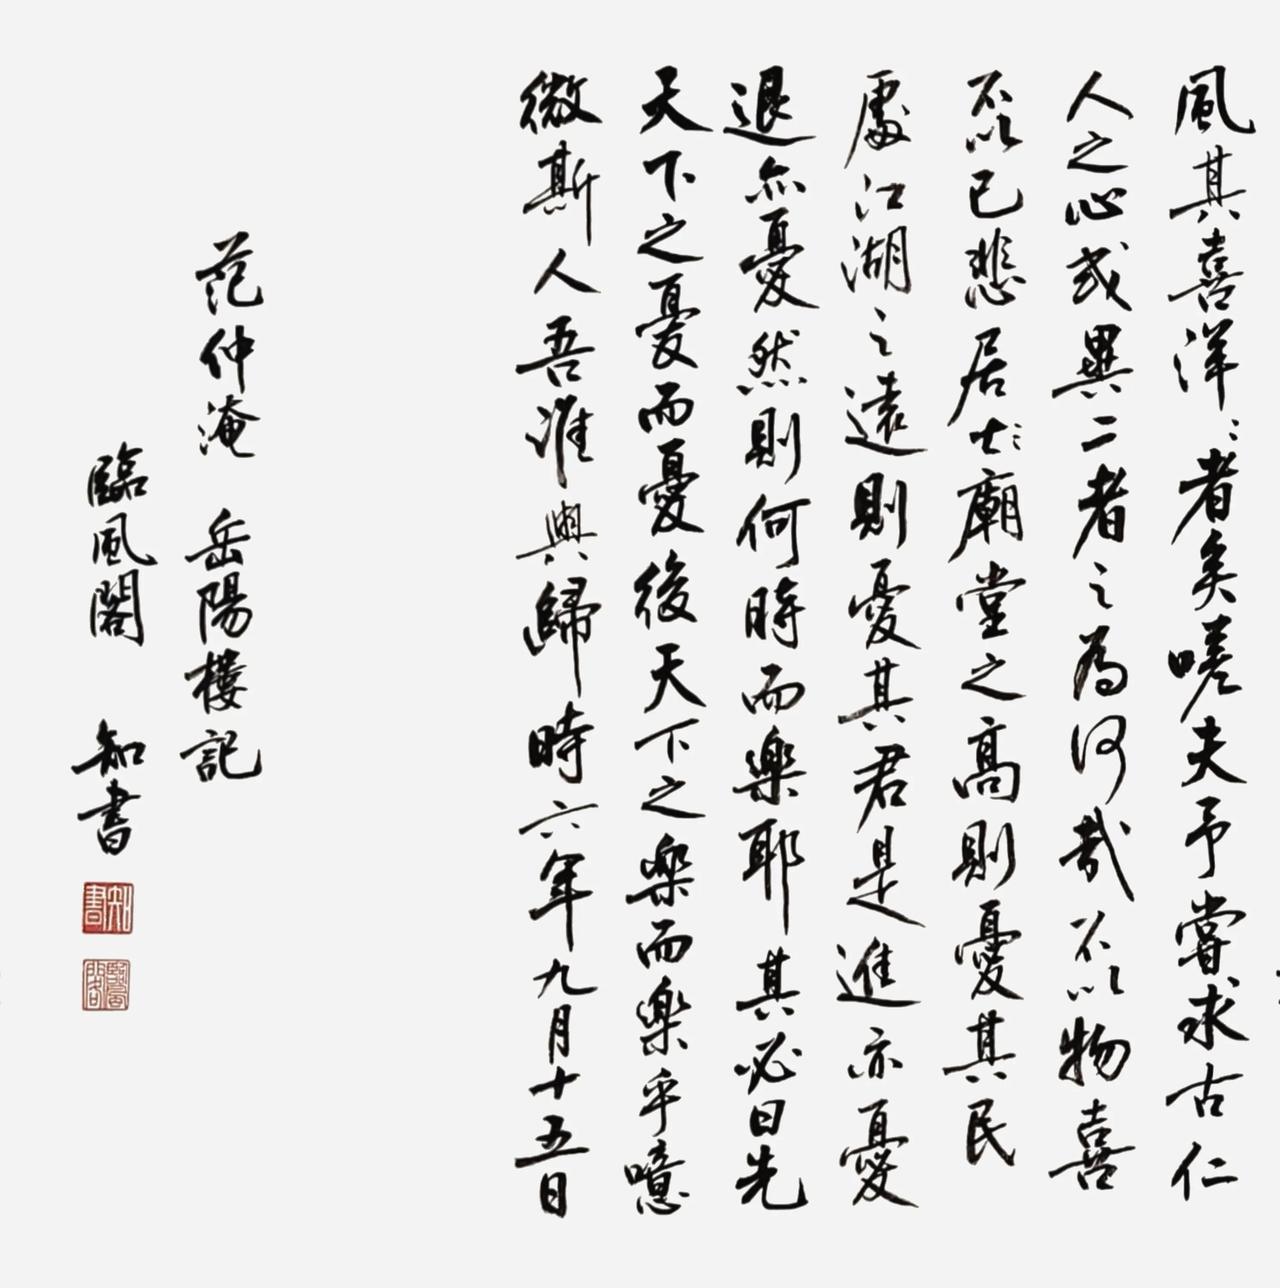 風其喜洋〻者矣嗟夫予嘗求古仁
人之心或異二者之為何哉不以物喜
不以己悲居廟堂之高則憂其民
處江湖之遠則憂其君是進亦憂
退亦憂然則何時而樂耶其必曰先
天下之憂而憂後天下之樂而樂乎噫
微斯人吾誰與歸時六年九月十五日
范仲淹 岳陽樓記
臨風閣 知書
知書